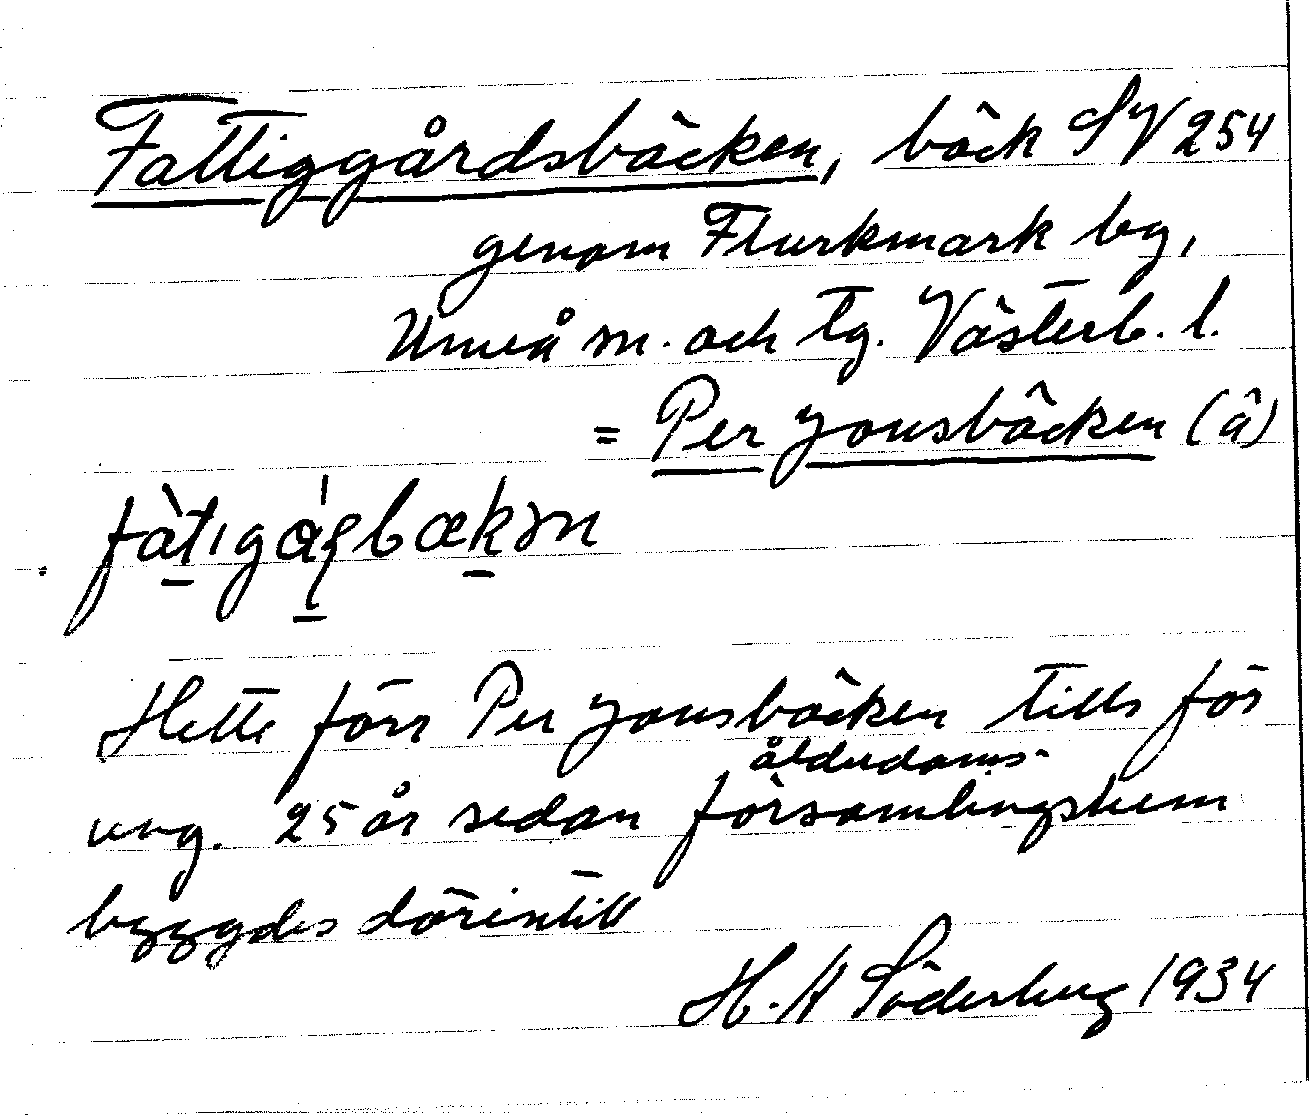 Fattiggårdsbäcken, bäck SV 254
genom Flurkmark by,
Umeå sn. och tg. Västerb. l.
= Per Jonsbäcken (â)
Hette förr Per Jonsbäcken tills för
ung. 25 år sedan församlingshem
ålderdoms-
byggdes därintill
H. A Söderberg 1934